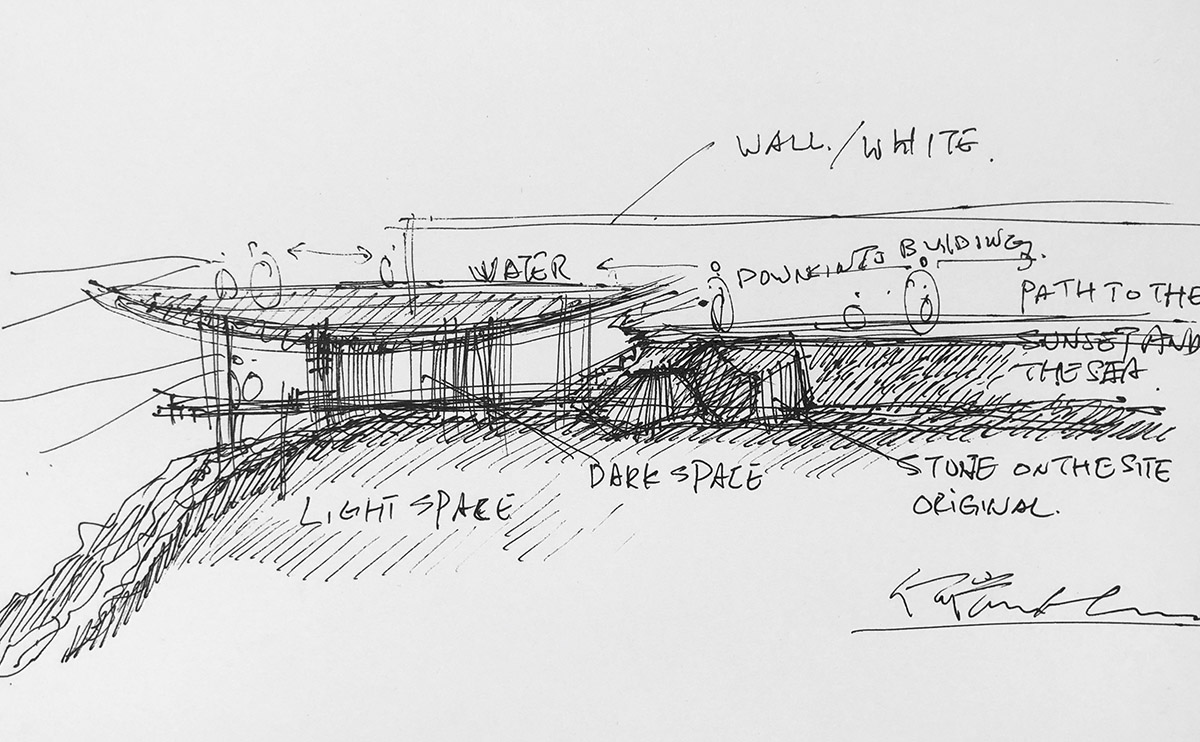 WALL./WHITE.
WATER
BUILDING.
PATH TO THE
SUNSET AND
THE SEA.
DARK SPACE
LIGHT SPACE
STONE ON THE SITE
ORIGINAL.